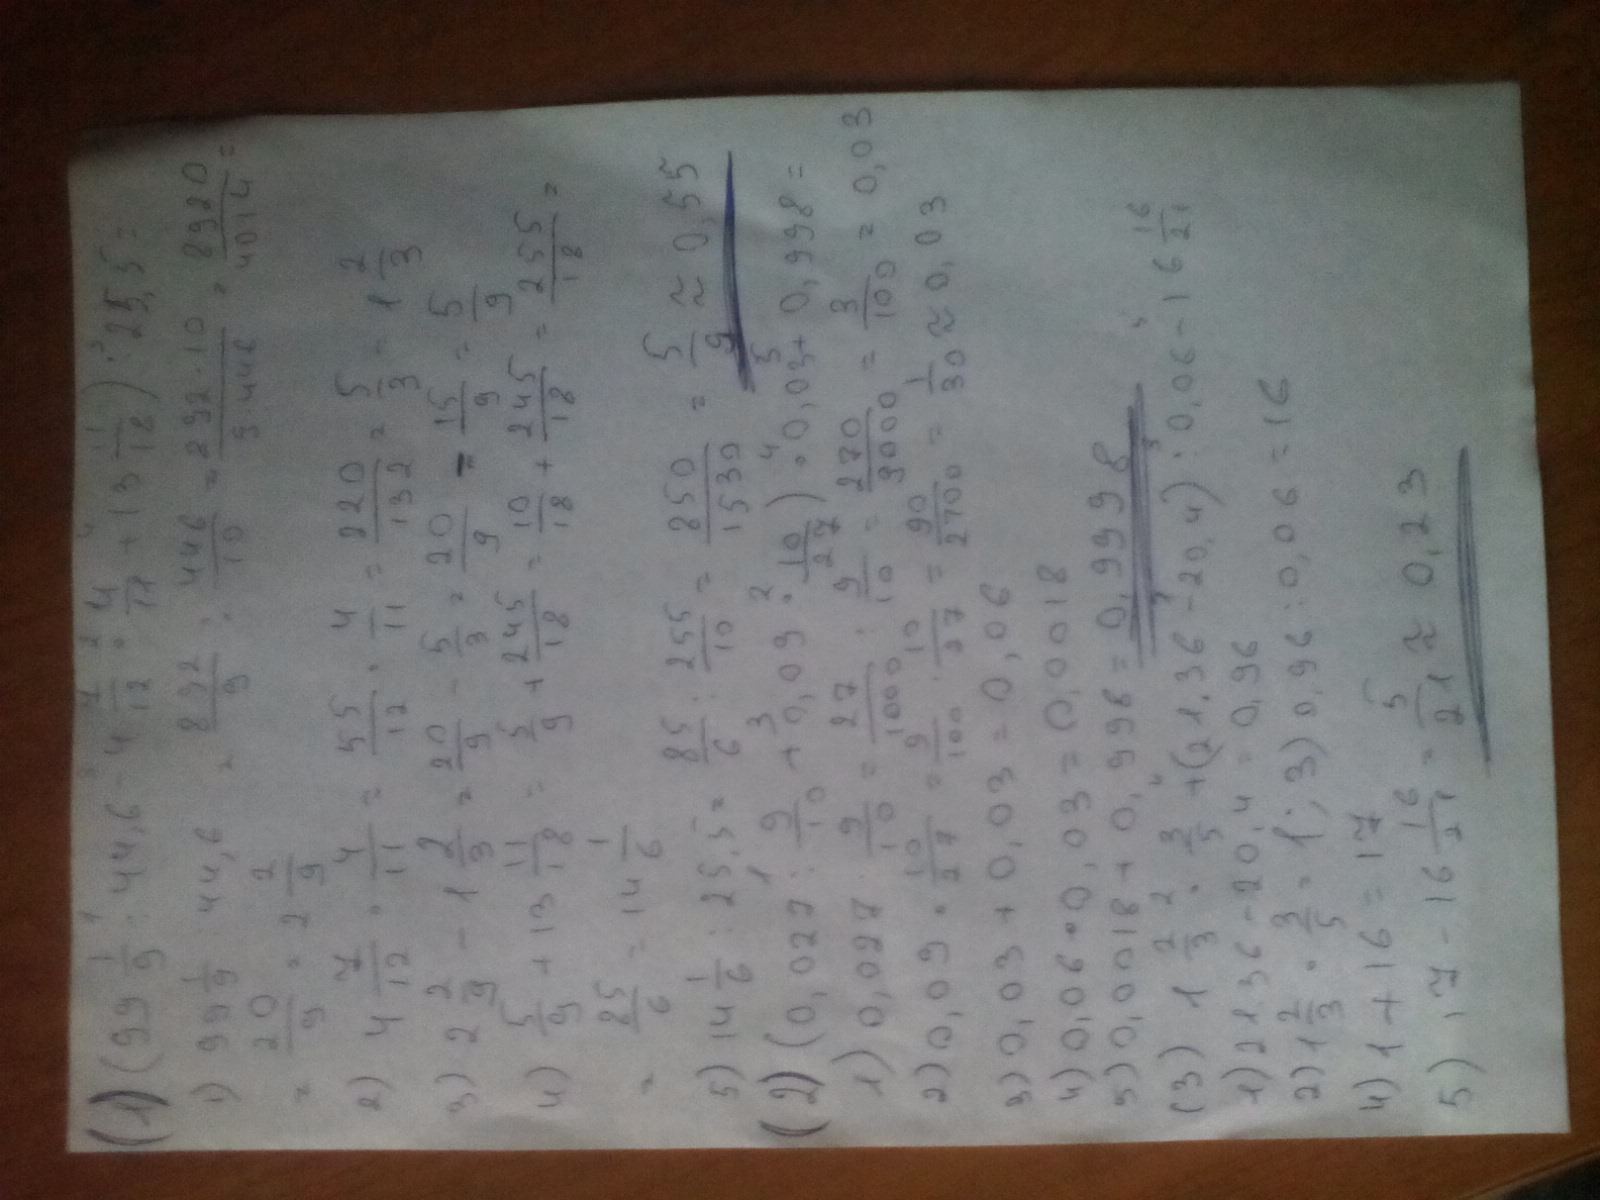 (1) (99 1/9 : 44,6 - 4 7/12 · 4/11 + 13 11/18) : 25,5 =
1) 99 1/9 : 44,6 = 892/9 : 446/10 = 892·10/9·446 = 8920/4014 =
= 20/9 = 2 2/9
2) 4 7/12 · 4/11 = 55/12 · 4/11 = 220/132 = 5/3 = 1 2/3
3) 2 2/9 - 1 2/3 = 20/9 - 5/3 = 20/9 - 15/9 = 5/9
4) 5/9 + 13 11/18 = 5/9 + 245/18 = 10/18 + 245/18 = 255/18 =
= 85/6 = 14 1/6
5) 14 1/6 : 25,5 = 85/6 : 255/10 = 850/1530 = 5/9 ≈ 0,55
(2) (0,027 : 9/10 + 0,09 · 10/27) · 0,03 + 0,998 =
1) 0,027 : 9/10 = 27/1000 : 9/10 = 270/9000 = 3/100 = 0,03
2) 0,09 · 10/27 = 9/100 · 10/27 = 90/2700 = 1/30 ≈ 0,03
3) 0,03 + 0,03 = 0,06
4) 0,06 · 0,03 = 0,0018
5) 0,0018 + 0,998 = 0,9998
(3) 1 2/3 · 3/5 + (21,36 - 20,4) : 0,06 - 16 16/21
1) 21.36 - 20,4 = 0,96
2) 1 2/3 · 3/5 = 1; 3) 0,96 : 0,06 = 16
4) 1 + 16 = 17
5) 17 - 16 16/21 = 5/21 ≈ 0,23